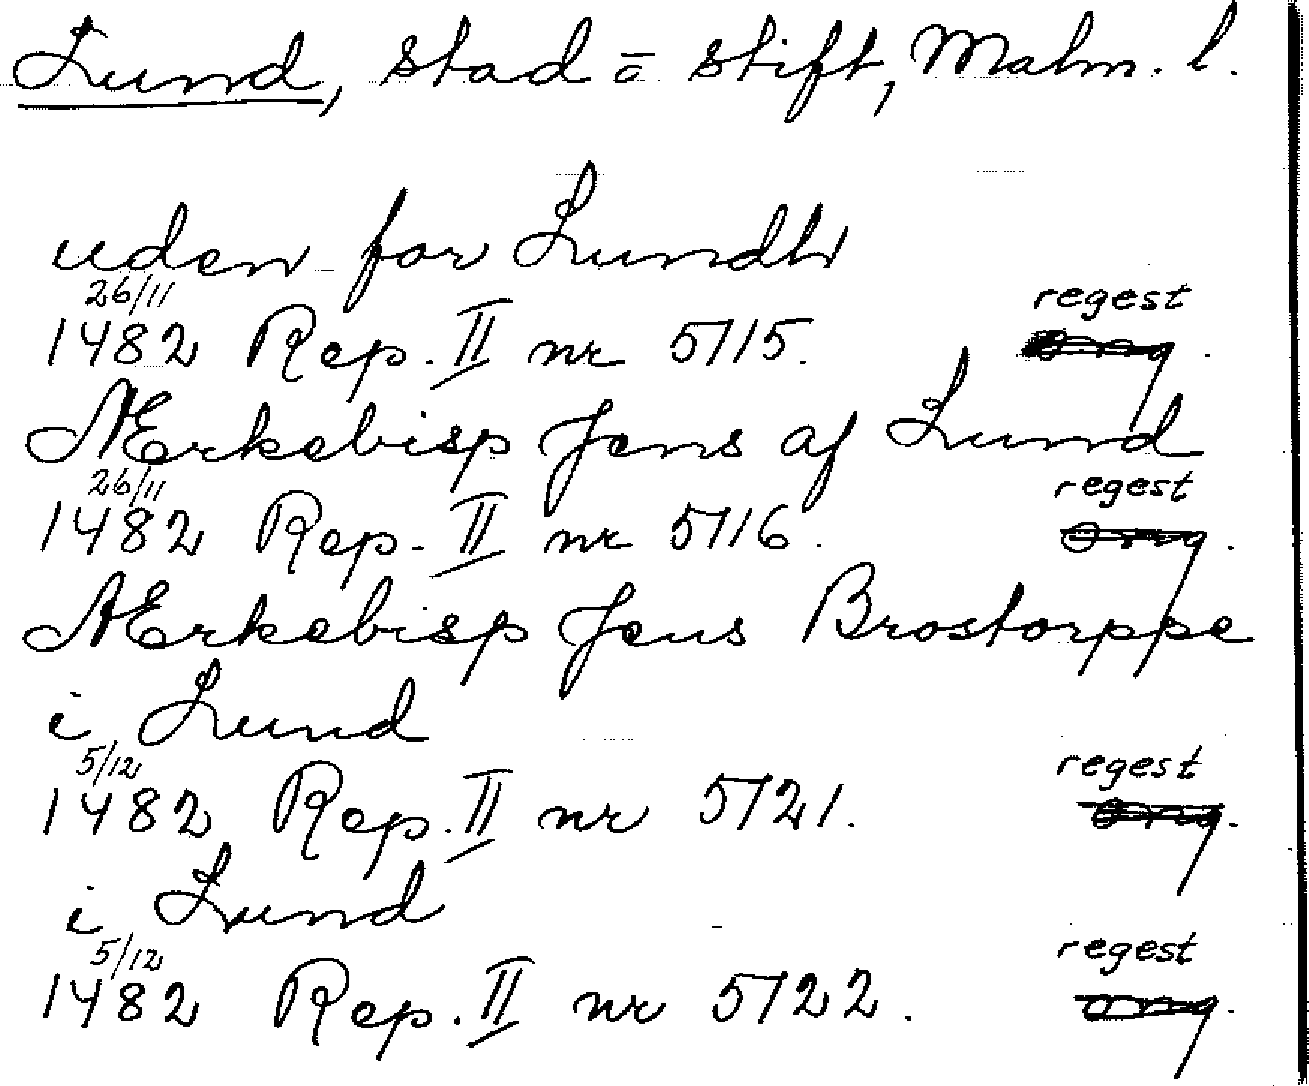 Lund, stad o stift, Malm. l.
uden for Lundh
26/11 regest
1482 Rep. II nr 5715. org.
Ærkebisp Jens af Lund
26/11 regest
1482 Rep. II nr 5716. org.
Ærkebisp Jens Brostorppe
i Lund
5/12 regest
1482 Rep. II nr 5721. org.
i Lund
5/12 regest
1482 Rep. II nr 5722. org.